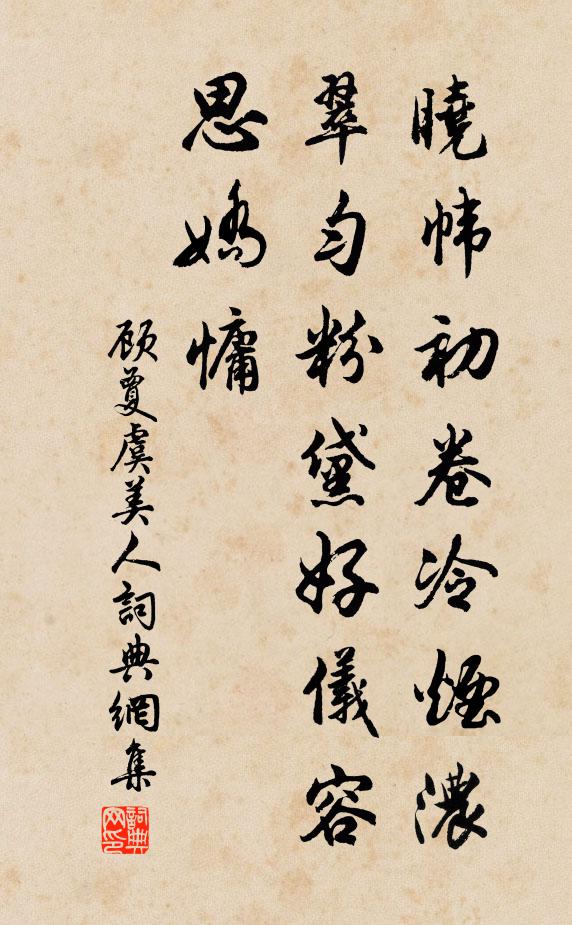 曉幃初卷冷煙濃
翠勻粉黛好儀容
思嬌慵
顧敻虞美人詞典網集
詞典網印